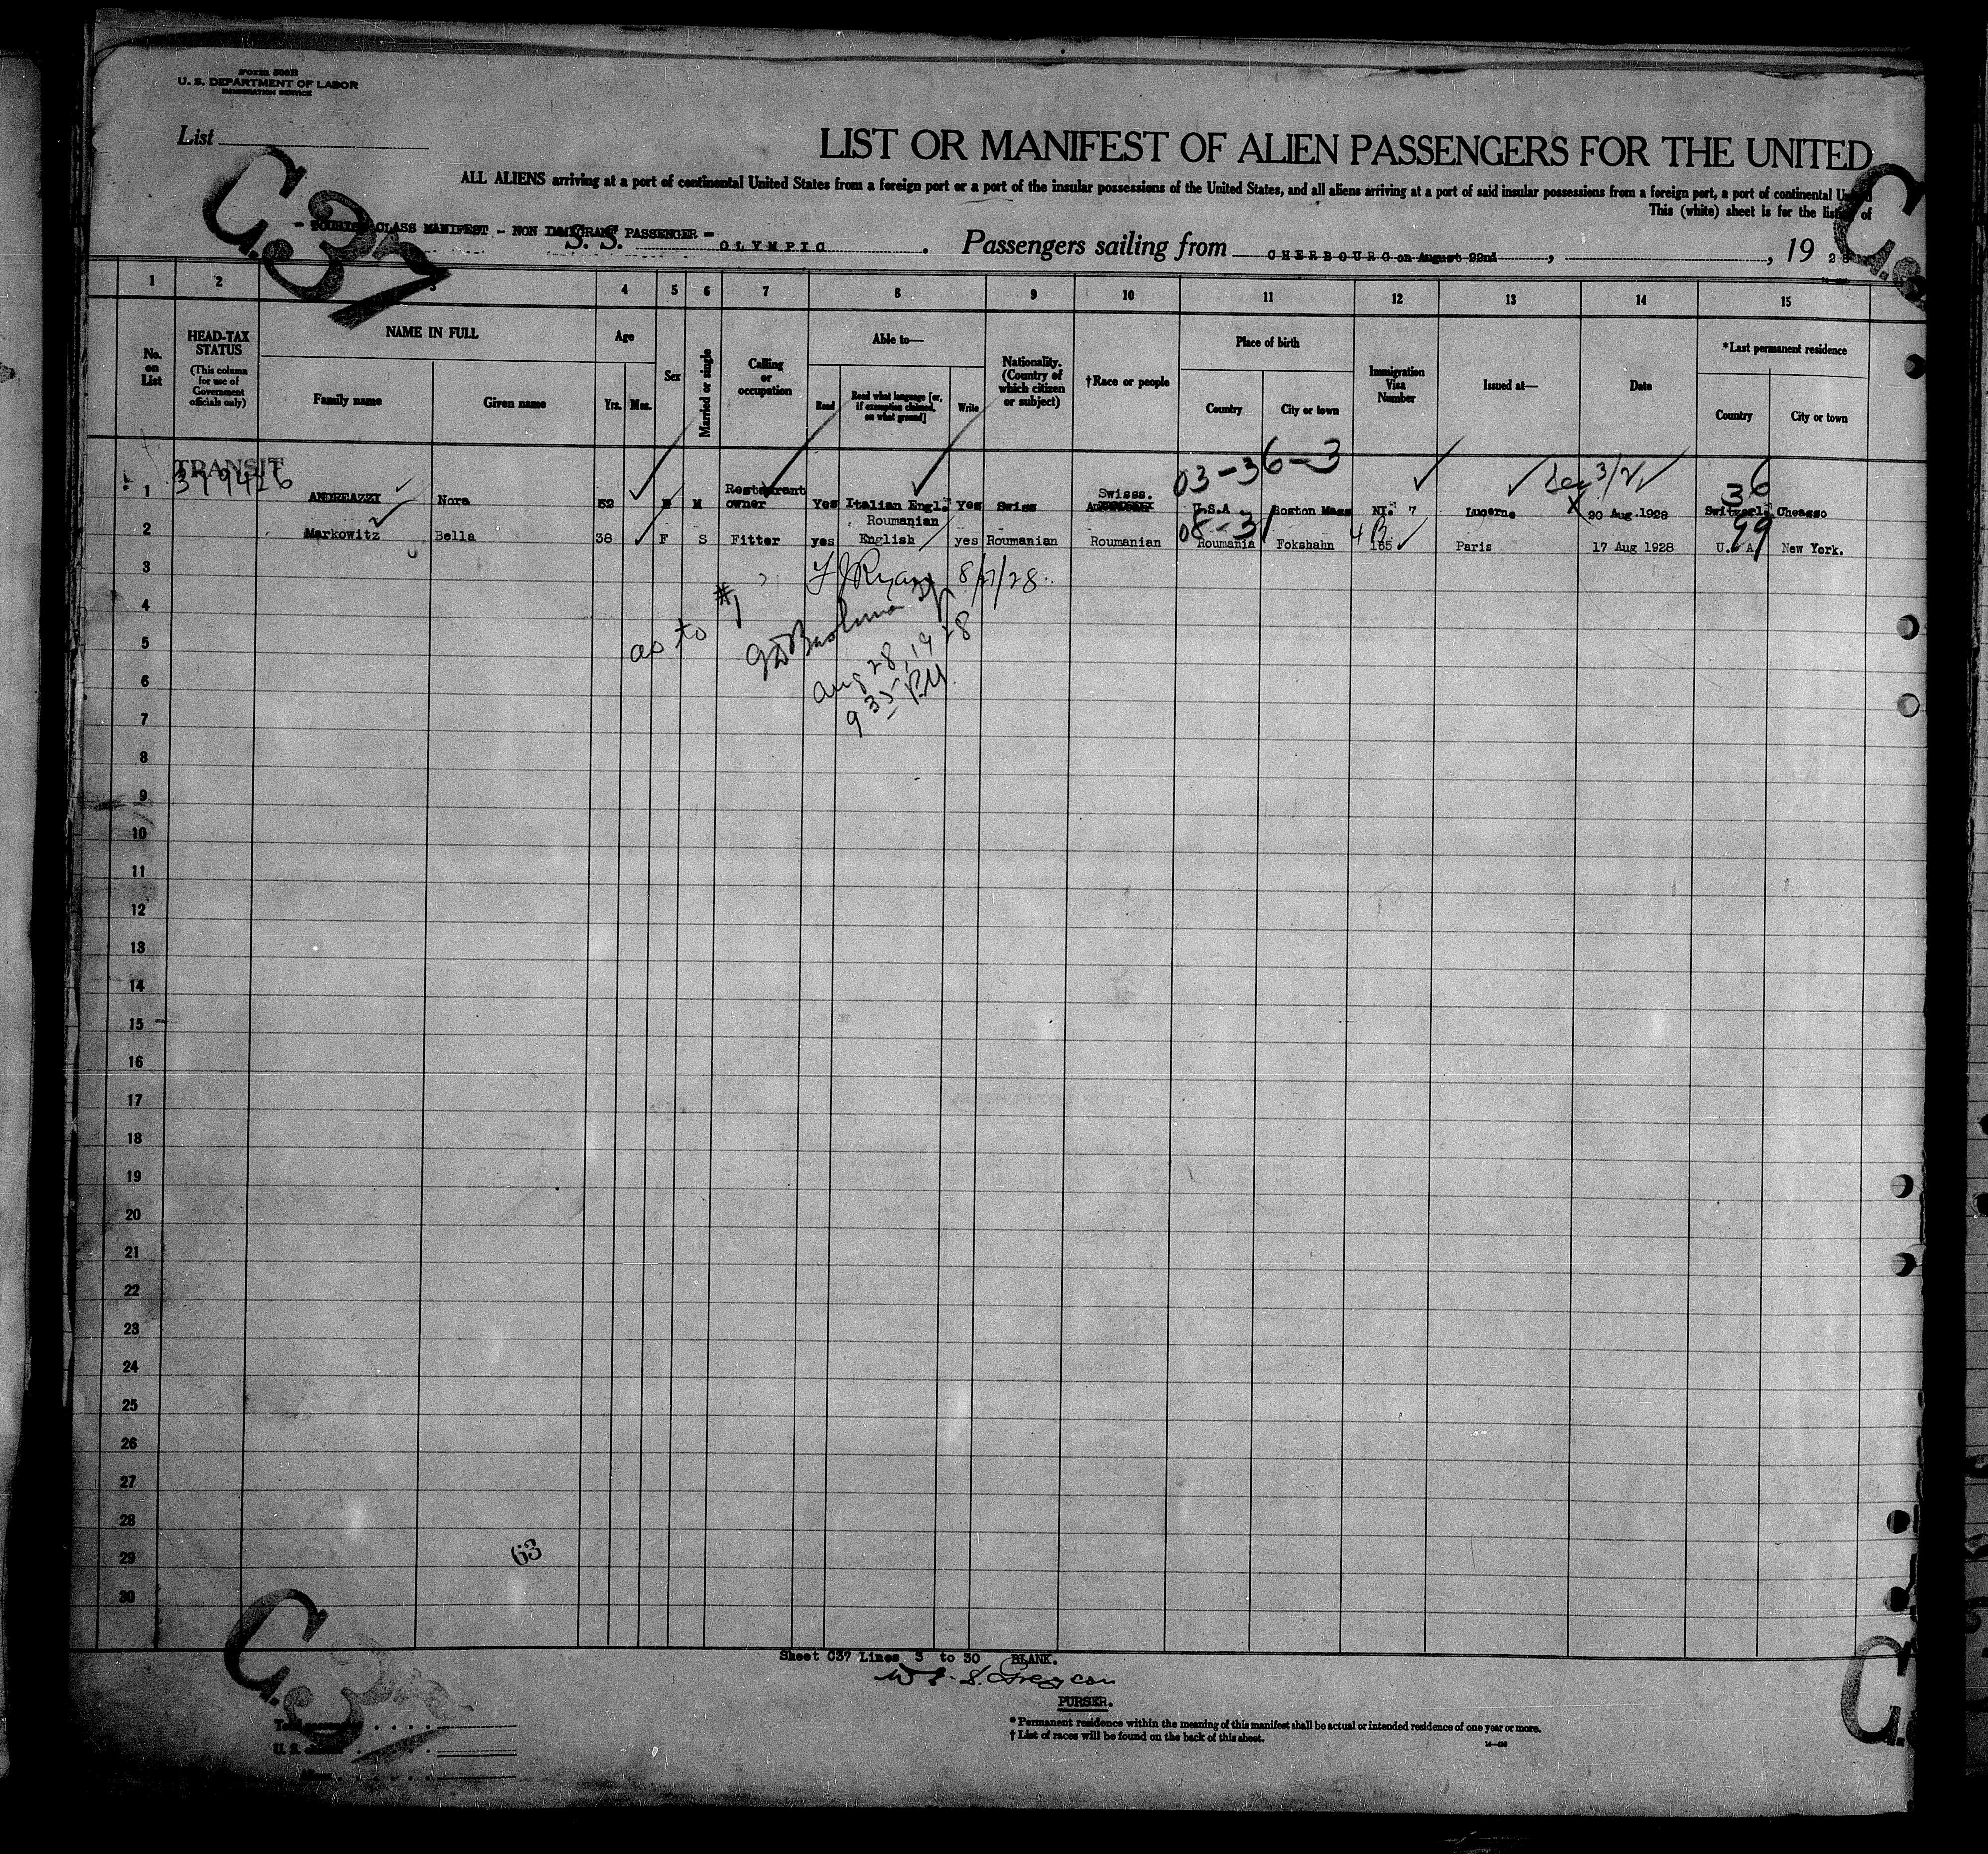 Form 500B
U. S. DEPARTMENT OF LABOR
IMMIGRATION SERVICE
List
LIST OR MANIFEST OF ALIEN PASSENGERS FOR THE UNITED
ALL ALIENS arriving at a port of continental United States from a foreign port or a port of the insular possessions of the United States, and all aliens arriving at a port of said insular possessions from a foreign port, a port of continental
This (white) sheet is for the listing of
C.37
C.
- TOURIST CLASS MANIFEST - NON IMMIGRANT PASSENGER -
S. S. OLYMPIC. Passengers sailing from CHERBOURG on August 22nd, , 19 28
1 2 3 4 5 6 7 8 9 10 11 12 13 14 15
No. on List
HEAD-TAX STATUS (This column for use of Government officials only)
NAME IN FULL
Family name
Given name
Age
Yrs. Mos.
Sex
Married or single
Calling or occupation
Able to—
Read
Read what language [or, if exemption claimed, on what ground]
Write
Nationality. (Country of which citizen or subject)
†Race or people
Place of birth
Country
City or town
Immigration Visa Number
Issued at—
Date
*Last permanent residence
Country
City or town
TRANSIT
379426
03-36-3
36
1 ANDREAZZI Nora 52 M Restaurant owner Yes Italian Engl. Yes Swiss Swisss. U.S.A Boston Mass NI. 7 Lucerne 20 Aug.1928 Switzerl. Cheasso
08-31
99
2 Markowitz Bella 38 F S Fitter yes Roumanian English yes Roumanian Roumanian Roumania Fokshahn 165 Paris 17 Aug 1928 U. A New York.
3
Ryan 8/27/28
4
as to #1
5
Aug 28, 1928
6
9 35 P.M.
7
8
9
10
11
12
13
14
15
16
17
18
19
20
21
22
23
24
25
26
27
28
29
30
63
Sheet C37 Lines 3 to 30 BLANK.
PURSER.
C.3
C.
* Permanent residence within the meaning of this manifest shall be actual or intended residence of one year or more.
† List of races will be found on the back of this sheet.
U. S.